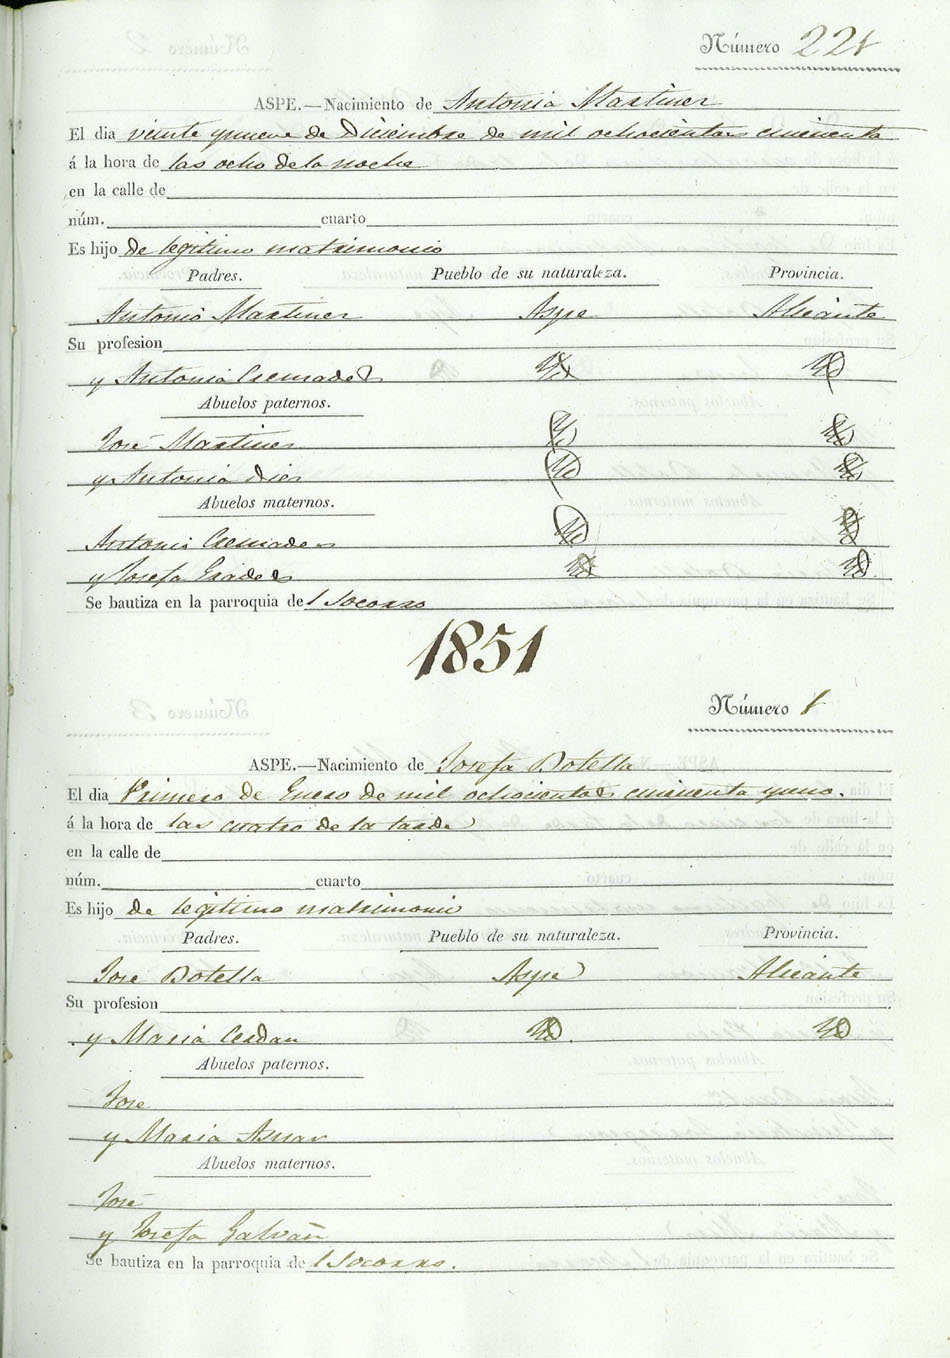 Número 221
ASPE.—Nacimiento de Antonia Martinez
El dia veinte y nueve de Diciembre de mil ochocientos cincuenta
á la hora de las ocho de la noche
en la calle de
núm. cuarto
Es hijo de legitimo matrimonio
Padres. Pueblo de su naturaleza. Provincia.
Antonio Martinez Aspe Alicante
Su profesion
y Antonia Cremades Yd Yd
Abuelos paternos.
José Martinez Yd Yd
y Antonia Dies Yd Yd
Abuelos maternos.
Antonio Cremades Yd Yd
y Josefa Yd Yd
Se bautiza en la parroquia del Socorro
1851
Número 1
ASPE.—Nacimiento de Josefa Botella
El dia Primero de Enero de mil ochocientos cincuenta y uno.
á la hora de las cuatro de la tarde
en la calle de
núm. cuarto
Es hijo de legitimo matrimonio
Padres. Pueblo de su naturaleza. Provincia.
Jose Botella Aspe Alicante
Su profesion
y Maria Cerdan Yd. Yd
Abuelos paternos.
Jose
y Maria Asnar
Abuelos maternos.
José
y Josefa Galvañ
Se bautiza en la parroquia del Socorro.